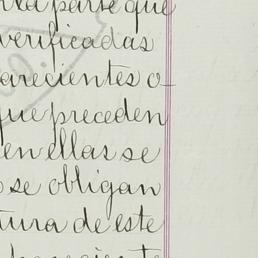 parte que
verificadas
arecientes o-
que preceden
en ellas se
se obligan
tura de este